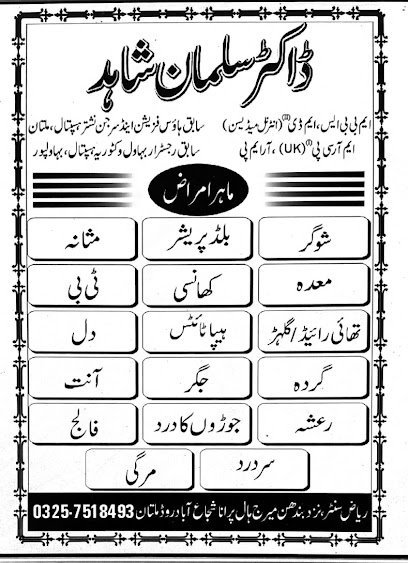 ڈاکٹر سلمان شاہد
ایم بی بی ایس، ایم ڈی (انٹرنل میڈیسن) سابق ہاؤس فزیشن اینڈ سرجن نشتر ہسپتال، ملتان
ایم آر سی پی (UK)، آر ایم پی سابق رجسٹرار بہاول وکٹوریہ ہسپتال، بہاولپور
ماہر امراض
شوگر بلڈ پریشر مثانہ
معدہ کھانسی ٹی بی
تھائی رائیڈ/گلہڑ ہیپاٹائٹس دل
گردہ جگر آنت
رعشہ جوڑوں کا درد فالج
سردرد مرگی
ریاض سنٹر، نزد بندھن میرج ہال پرانا شجاع آباد روڈ ملتان 0325-7518493